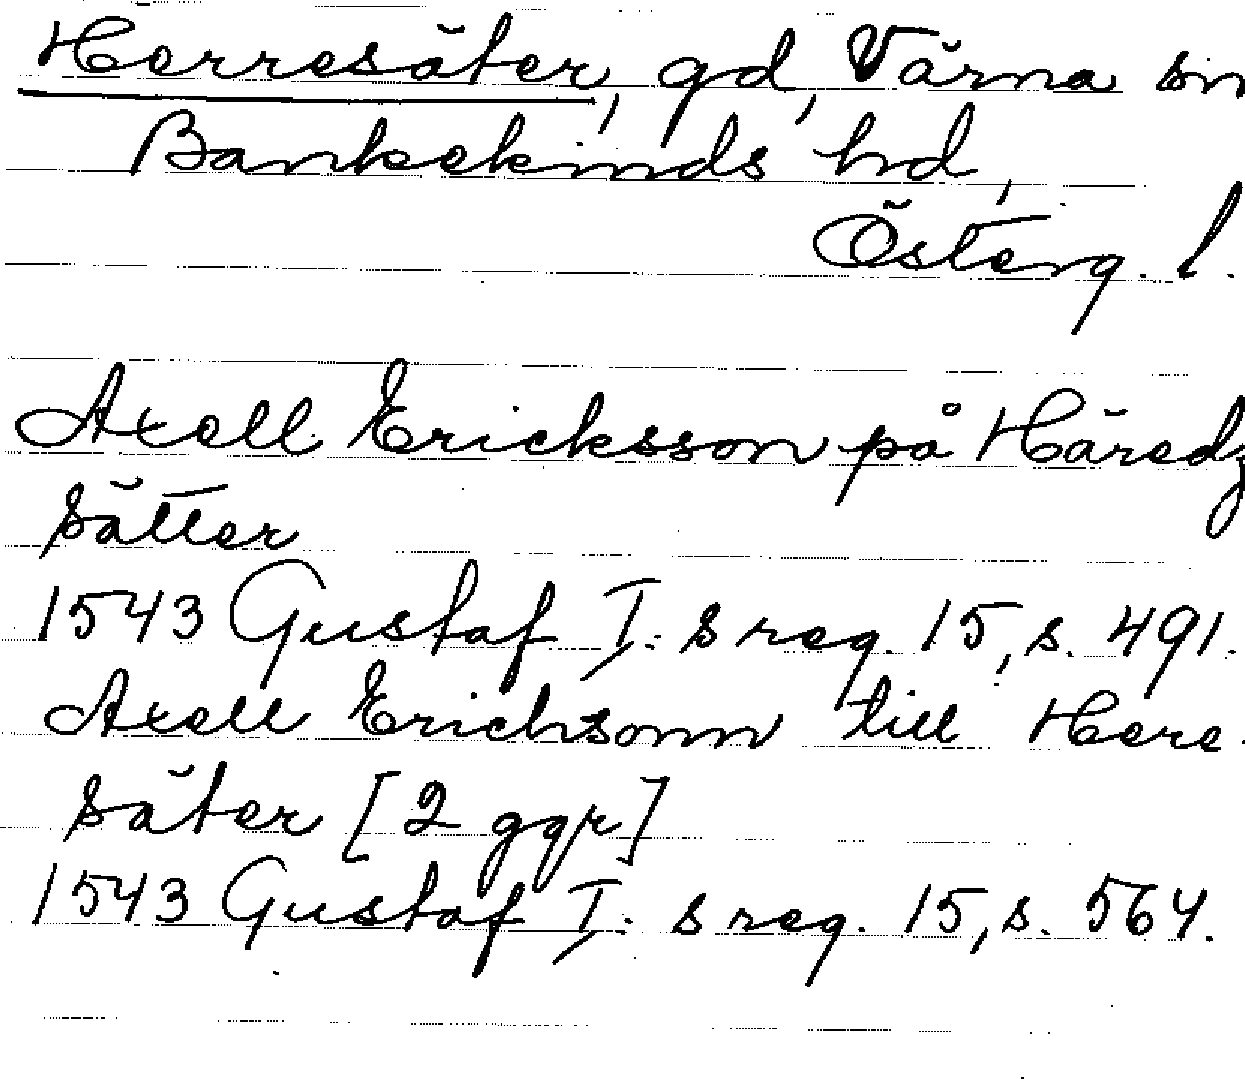 Herresäter, gd, Värna sn
Bankekinds hd,
Österg. l.
Axell Ericksson på Häredz
sätter
1543 Gustaf I: s reg. 15, s. 491.
Axell Erichsonn till Here-
säter [2 ggr]
1543 Gustaf I: s reg. 15, s. 564.